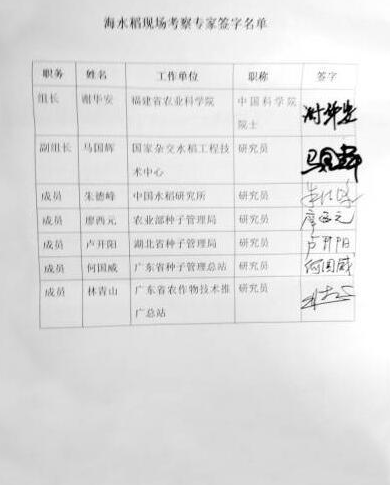 海水稻现场考察专家签字名单
职务 姓名 工作单位 职称 签字
组长 谢华安 福建省农业科学院 中国科学院 谢华安
院士
副组长 马国辉 国家杂交水稻工程技 研究员 马国辉
术中心
成员 朱德峰 中国水稻研究所 研究员
成员 廖西元 农业部种子管理局 研究员 廖西元
成员 卢开阳 湖北省种子管理局 研究员 卢开阳
成员 何国威 广东省种子管理总站 研究员 何国威
成员 林青山 广东省农作物技术推 研究员
广总站